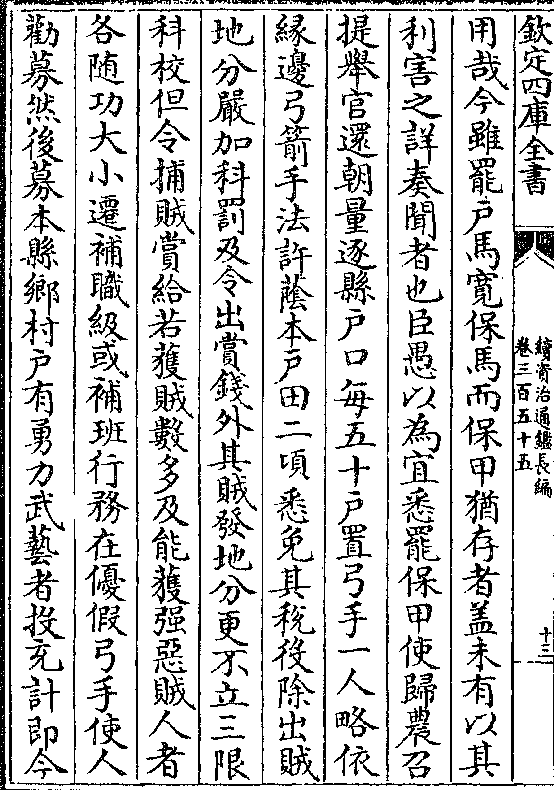 欽定四庫全書
續資治通鑑長編
卷三百五十五
十三
用哉今雖罷戸馬寛保馬而保甲猶存者盖未有以其
利害之詳奏聞者也臣愚以為宜悉罷保甲使歸農召
提舉官還朝量逐縣戸口每五十戸置弓手一人略依
縁邊弓箭手法許蔭本戸田二頃悉免其稅役除出賊
地分嚴加科罰及令出賞錢外其賊發地分更不立三限
科校但令捕賊賞給若獲賊數多及能獲强惡賊人者
各随功大小遷補職級或補班行務在優假弓手使人
勸募然後募本縣鄉村戸有勇力武藝者投充計即今